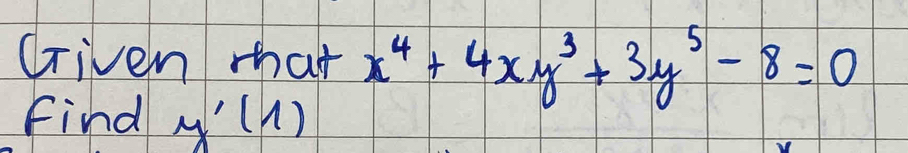 Given that x⁴ + 4xy³ + 3y⁵ - 8 = 0
Find y'(1)